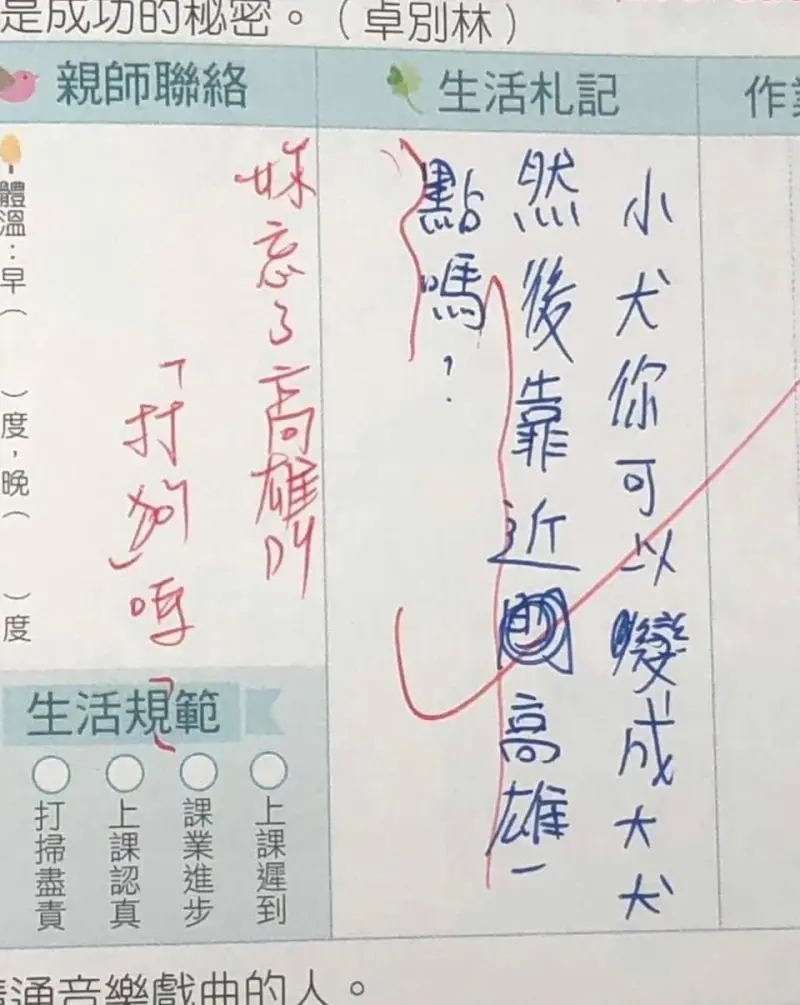 是成功的秘密。（卓別林）
作業
生活札記
小犬你可以變成大犬
然後靠近高雄一
點嗎？
親師聯絡
忘了高雄叫
「打狗」
體溫：早（ ）度，晚（ ）度
生活規範
上課遲到
課業進步
上課認真
打掃盡責
通音樂戲曲的人。